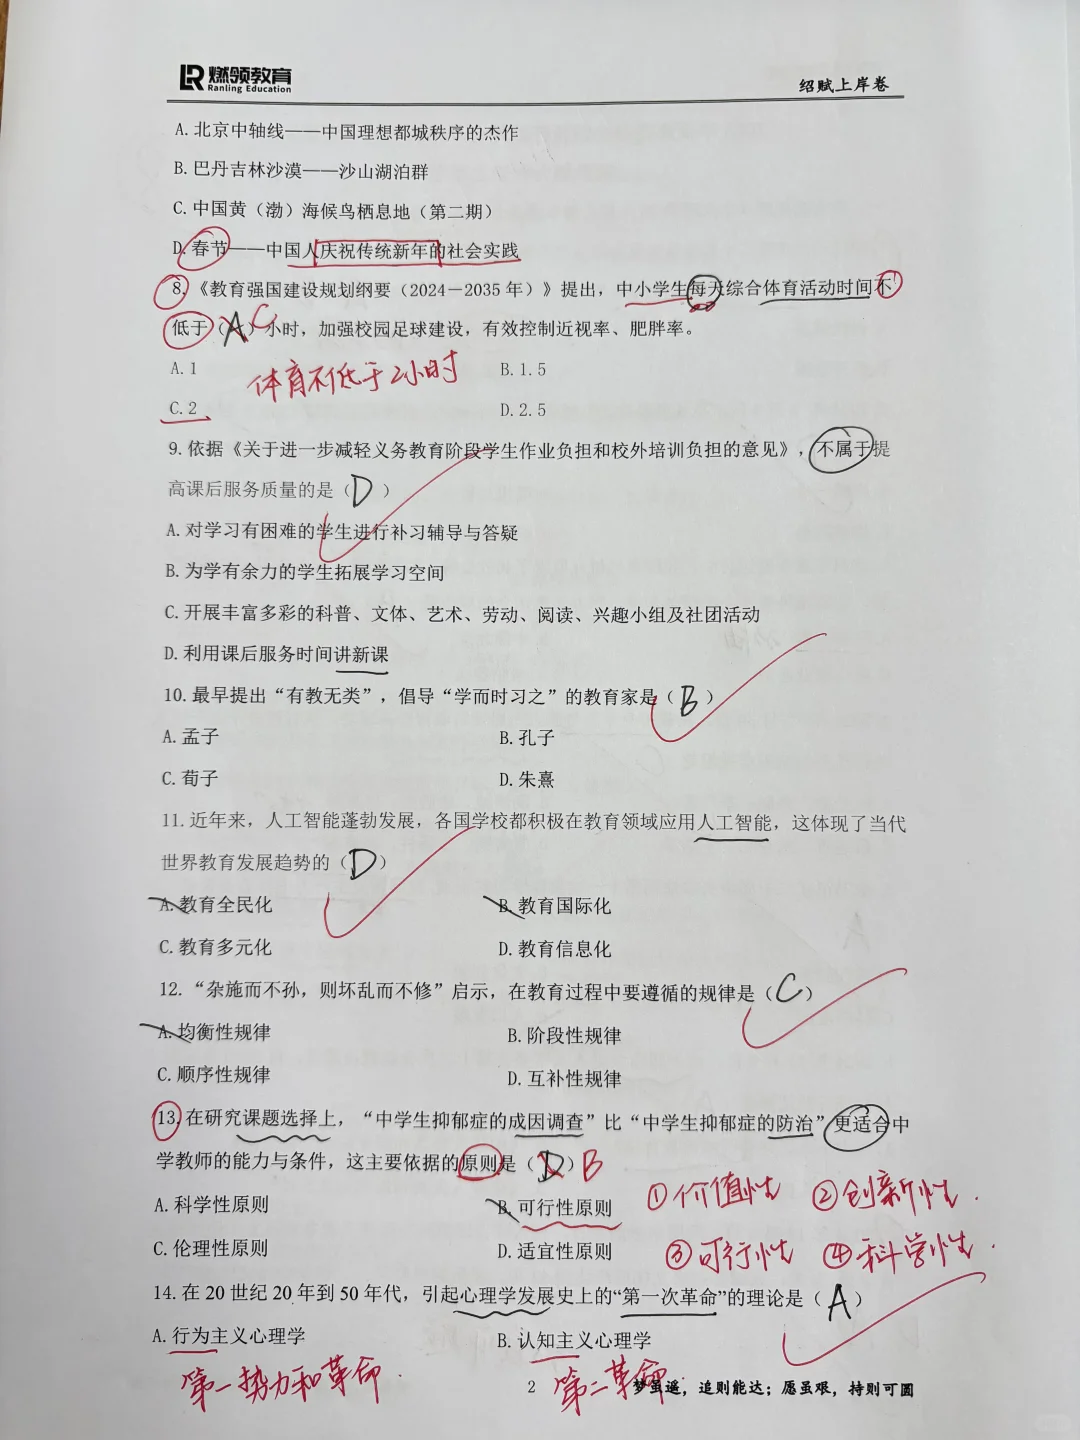 LR 燃领教育
Ranling Education
绍赋上岸卷
A. 北京中轴线——中国理想都城秩序的杰作
B. 巴丹吉林沙漠——沙山湖泊群
C. 中国黄（渤）海候鸟栖息地（第二期）
D. 春节——中国人庆祝传统新年的社会实践
8. 《教育强国建设规划纲要（2024－2035 年）》提出，中小学生每天综合体育活动时间不
低于（A）C 小时，加强校园足球建设，有效控制近视率、肥胖率。
A. 1 B. 1.5
体育不低于2小时
C. 2 D. 2.5
9. 依据《关于进一步减轻义务教育阶段学生作业负担和校外培训负担的意见》，不属于提
高课后服务质量的是（D）
A. 对学习有困难的学生进行补习辅导与答疑
B. 为学有余力的学生拓展学习空间
C. 开展丰富多彩的科普、文体、艺术、劳动、阅读、兴趣小组及社团活动
D. 利用课后服务时间讲新课
10. 最早提出“有教无类”，倡导“学而时习之”的教育家是（B）
A. 孟子 B. 孔子
C. 荀子 D. 朱熹
11. 近年来，人工智能蓬勃发展，各国学校都积极在教育领域应用人工智能，这体现了当代
世界教育发展趋势的（D）
A. 教育全民化 B. 教育国际化
C. 教育多元化 D. 教育信息化
12. “杂施而不孙，则坏乱而不修”启示，在教育过程中要遵循的规律是（C）
A. 均衡性规律 B. 阶段性规律
C. 顺序性规律 D. 互补性规律
13. 在研究课题选择上，“中学生抑郁症的成因调查”比“中学生抑郁症的防治”更适合中
学教师的能力与条件，这主要依据的原则是（D）B
A. 科学性原则 B. 可行性原则 ①价值性 ②创新性.
C. 伦理性原则 D. 适宜性原则 ③可行性 ④科学性.
14. 在 20 世纪 20 年到 50 年代，引起心理学发展史上的“第一次革命”的理论是（A）
A. 行为主义心理学 B. 认知主义心理学
第一势力和革命. 第二革命.
2 梦虽遥，追则能达；愿虽艰，持则可圆